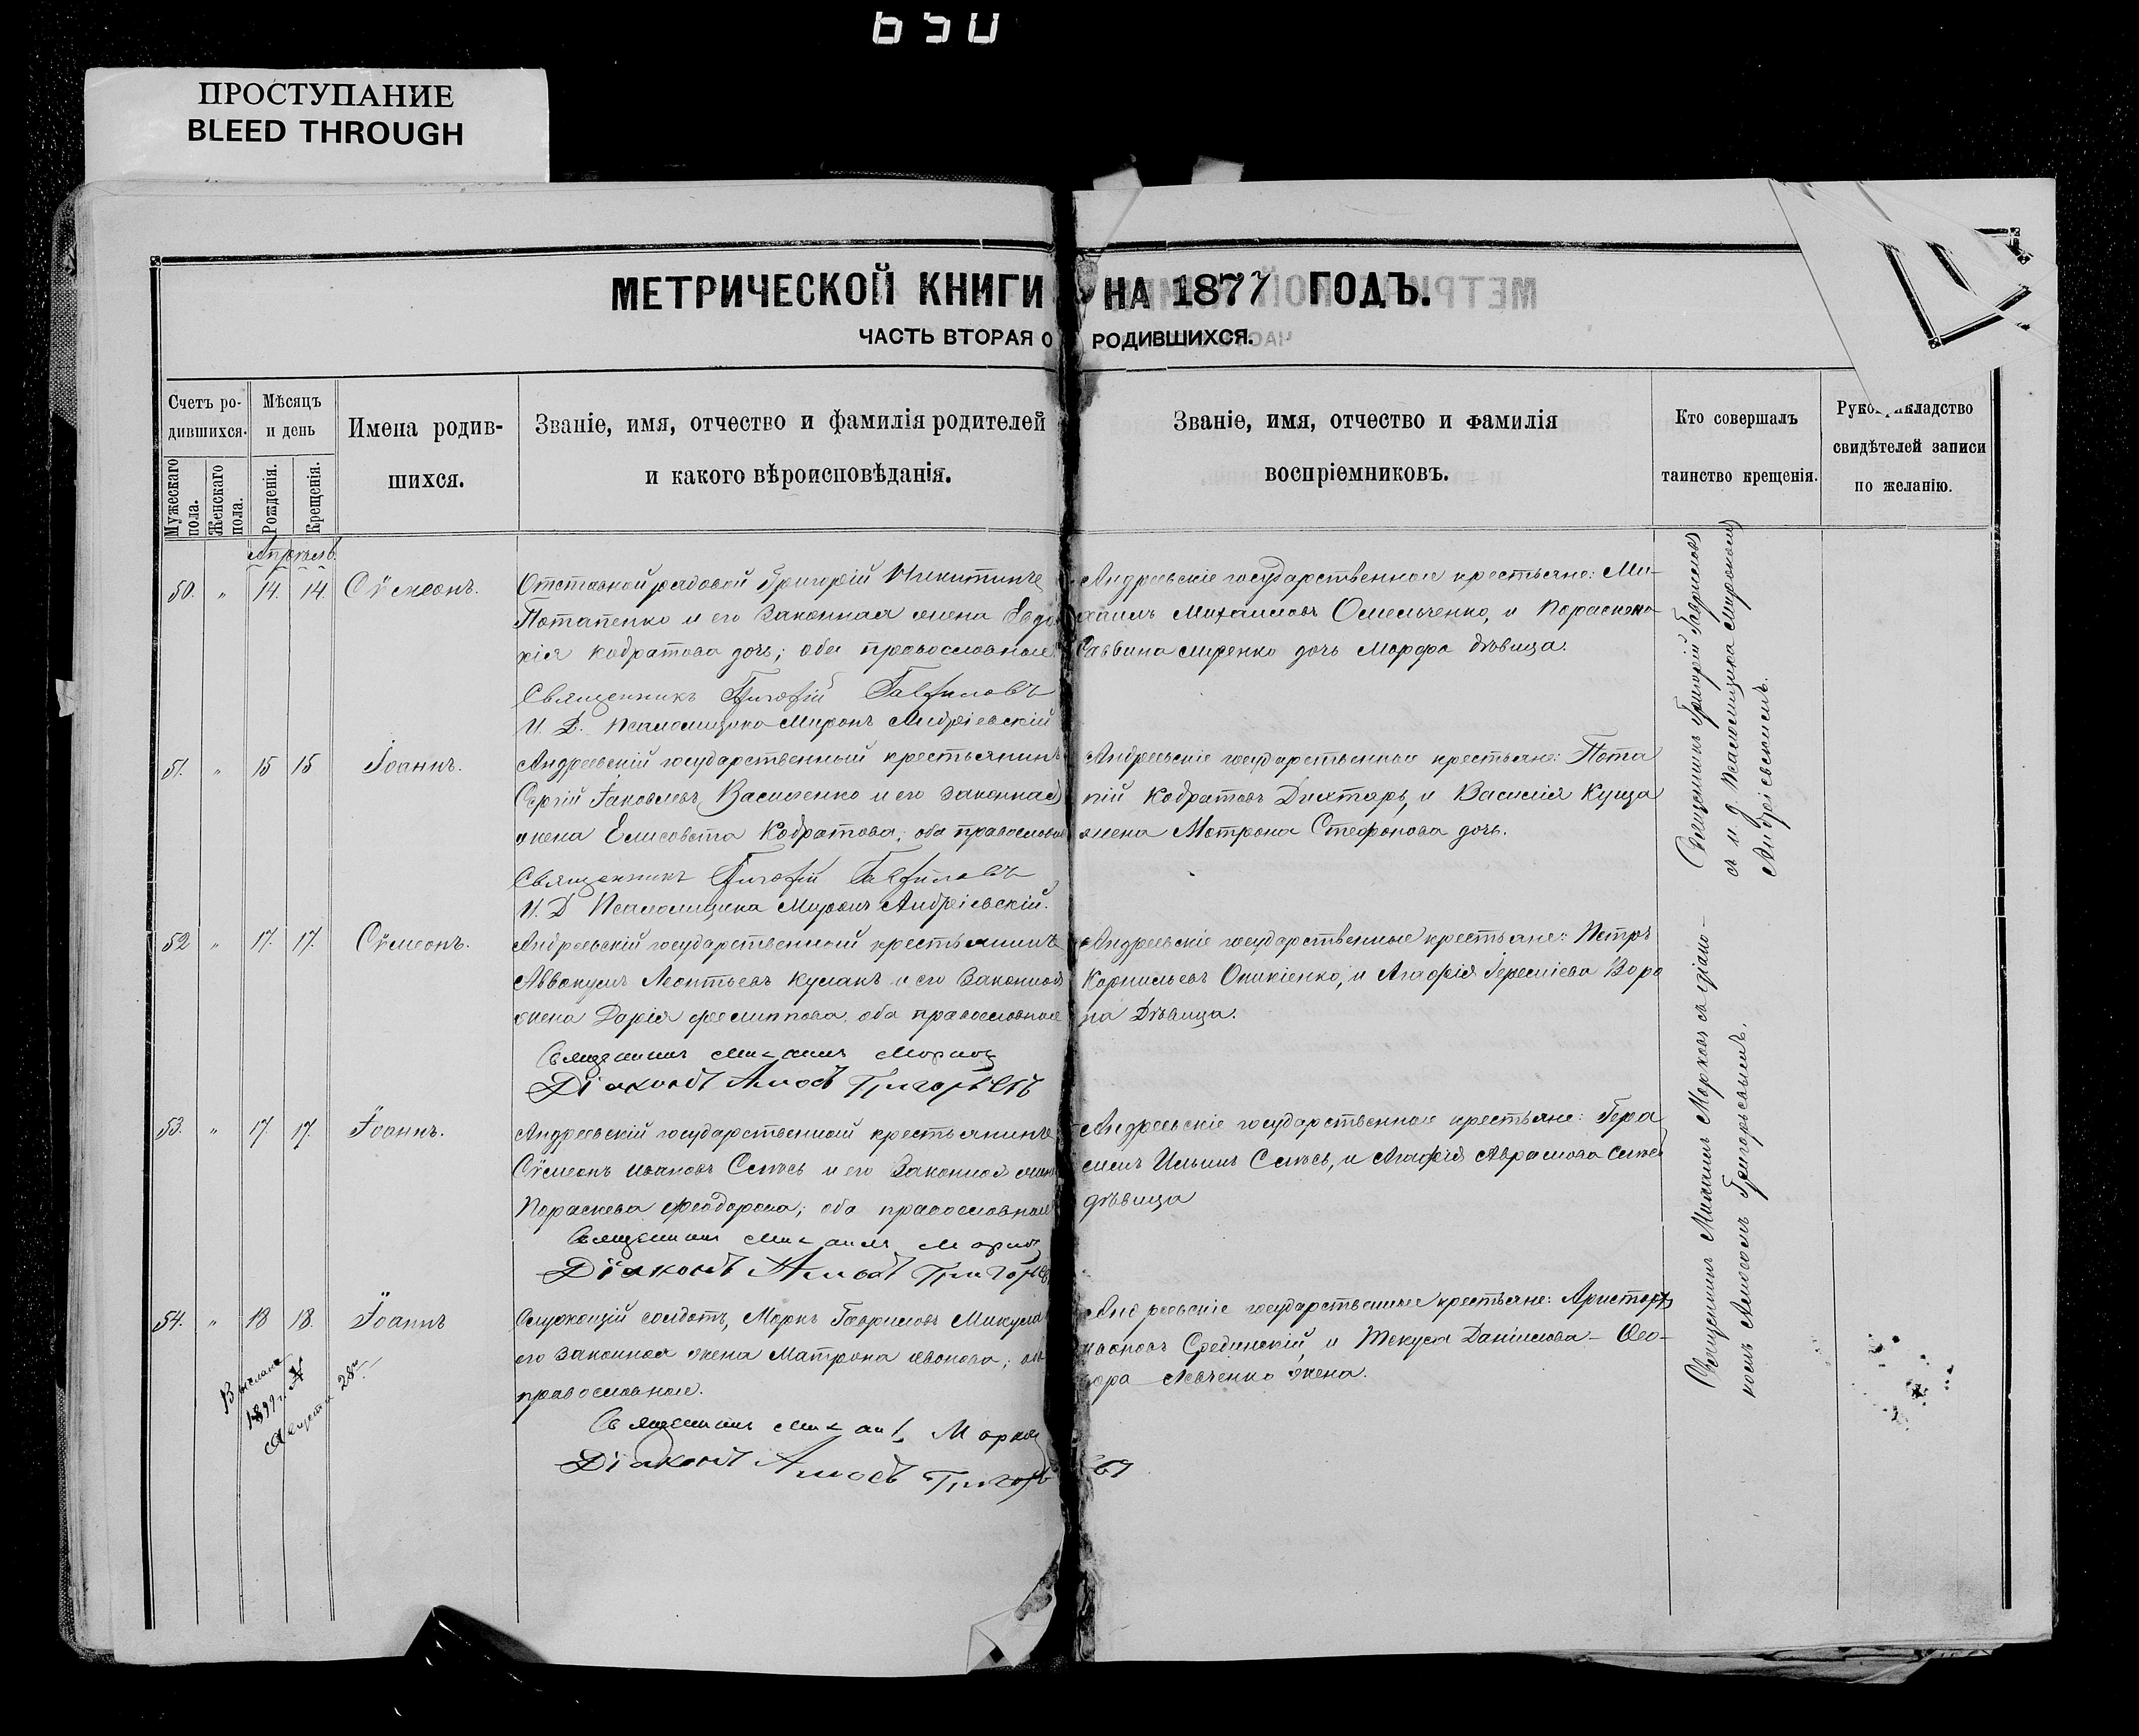 650
ПРОСТУПАНИЕ
BLEED THROUGH
МЕТРИЧЕСКОЙ КНИГИ НА 1877 ГОДЪ.
ЧАСТЬ ВТОРАЯ О РОДИВШИХСЯ.
Счетъ ро-
дившихся.
Мужескаго пола.
Женскаго пола.
Мѣсяцъ
и день
Рожденія.
Крещенія.
Имена родив-
шихся.
Званіе, имя, отчество и фамилія родителей
и какого вѣроисповѣданія.
Званіе, имя, отчество и фамилія
воспріемниковъ.
Кто совершалъ
таинство крещенія.
Рукоприкладство
свидѣтелей записи
по желанію.
Апрѣль.
50. " 14. 14. Сѵмеонъ.
Отставной рядовой Григорій Никитинъ
Потапенко и его законная жена Евдо
кія Кодратова дочь; оба православные
Священникъ Григорій Гавриловъ
И. Д. Псаломщика Миронъ Андріевскій
Андреевскіе государственные крестьяне: Ми-
хаилъ Михаиловъ Омельченко, и
Саввина дочь Марфа дѣвица.
51. " 15 15 Іоаннъ.
Андреевскій государственный крестьянинъ
Сергій Іаковлевъ Василенко и его законная
жена Елисавета Кодратова; оба православные
Священникъ Григорій Гавриловъ
И. Д. Псаломщика Миронъ Андріевскій.
Андреевскіе государственные крестьяне: Пота
пій Кодратовъ Дихтярь, и Василія Куца
жена Матрона Стефанова дочь.
Священникъ Григорій Гавриловъ
съ и. д. Псаломщика Мирономъ
Андріевскимъ.
52 " 17. 17. Сѵмеонъ.
Андреевскій государственный крестьянинъ
Аввакумъ Леонтьевъ Кулакъ и его законная
жена Дарія Филиппова, оба православные
Священникъ Михаилъ Марков
Діаконъ Амосъ Григорьевъ
Андреевскіе государственные крестьяне: Петръ
Корнильевъ Оникіенко, и Агафія Іереміева Воро
на Дѣвица.
53. " 17. 17. Іоаннъ.
Андреевскій государственный крестьянинъ
Сѵмеонъ Ивановъ и его законная жена
Параскева Феодорова; оба православные
Священникъ Михаилъ Марков
Діаконъ Амосъ Григорьев
Андреевскіе государственные крестьяне: Гера
симъ Ильинъ и Агафія Аврамова
дѣвица
54. " 18 18. Іоаннъ
Служащій солдатъ, Маркъ Гавриловъ Микула
его законная жена Матрона Іванова; оба
православные.
Священникъ Михаилъ Марков
Діаконъ Амосъ Григорьевъ
Андреевскіе государственные крестьяне: Аристархъ
Ивановъ Срединскій и Текуса Даніилова - Ѳео-
дора Левченко жена.
Священникъ Михаилъ Марковъ съ діако-
номъ Амосомъ Григорьевымъ.
Выслана
1897 г.
Августа 28го